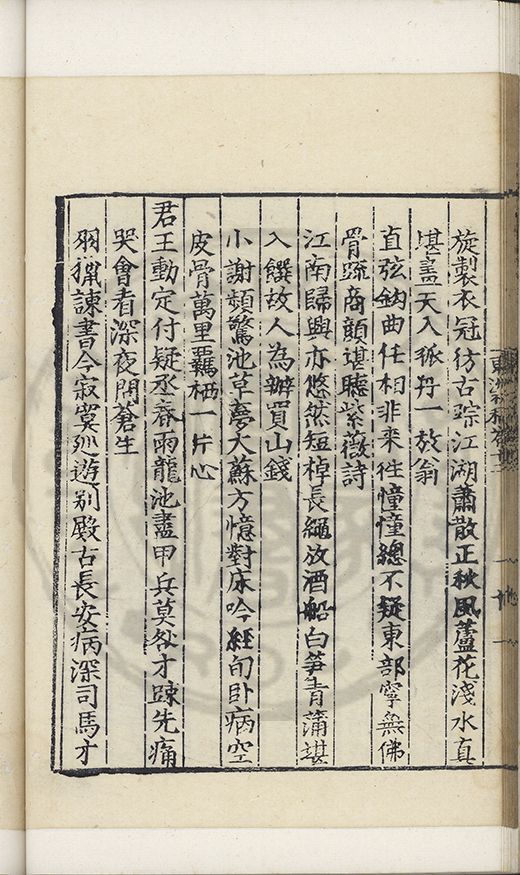 旋製衣冠彷古踪江湖蕭散正秋風蘆花淺水真
堪畫天入孤丹一放翁
直弦鈎曲任相非来徃憧憧總不疑東部寧無佛
骨疏商顔堪聴紫薇詩
江南歸興亦悠然短棹長繩放酒船白笋青蒲堪
入饌故人為辦買山錢
小謝頻驚池草夢大蘇方憶對床吟經旬卧病空
皮骨萬里覊栖一片心
君王動定付疑丞春雨龍池盡甲兵莫咎才踈先痛
哭會看深夜問蒼生
羽獵諫書今寂寞廵遊别殿古長安病深司馬才